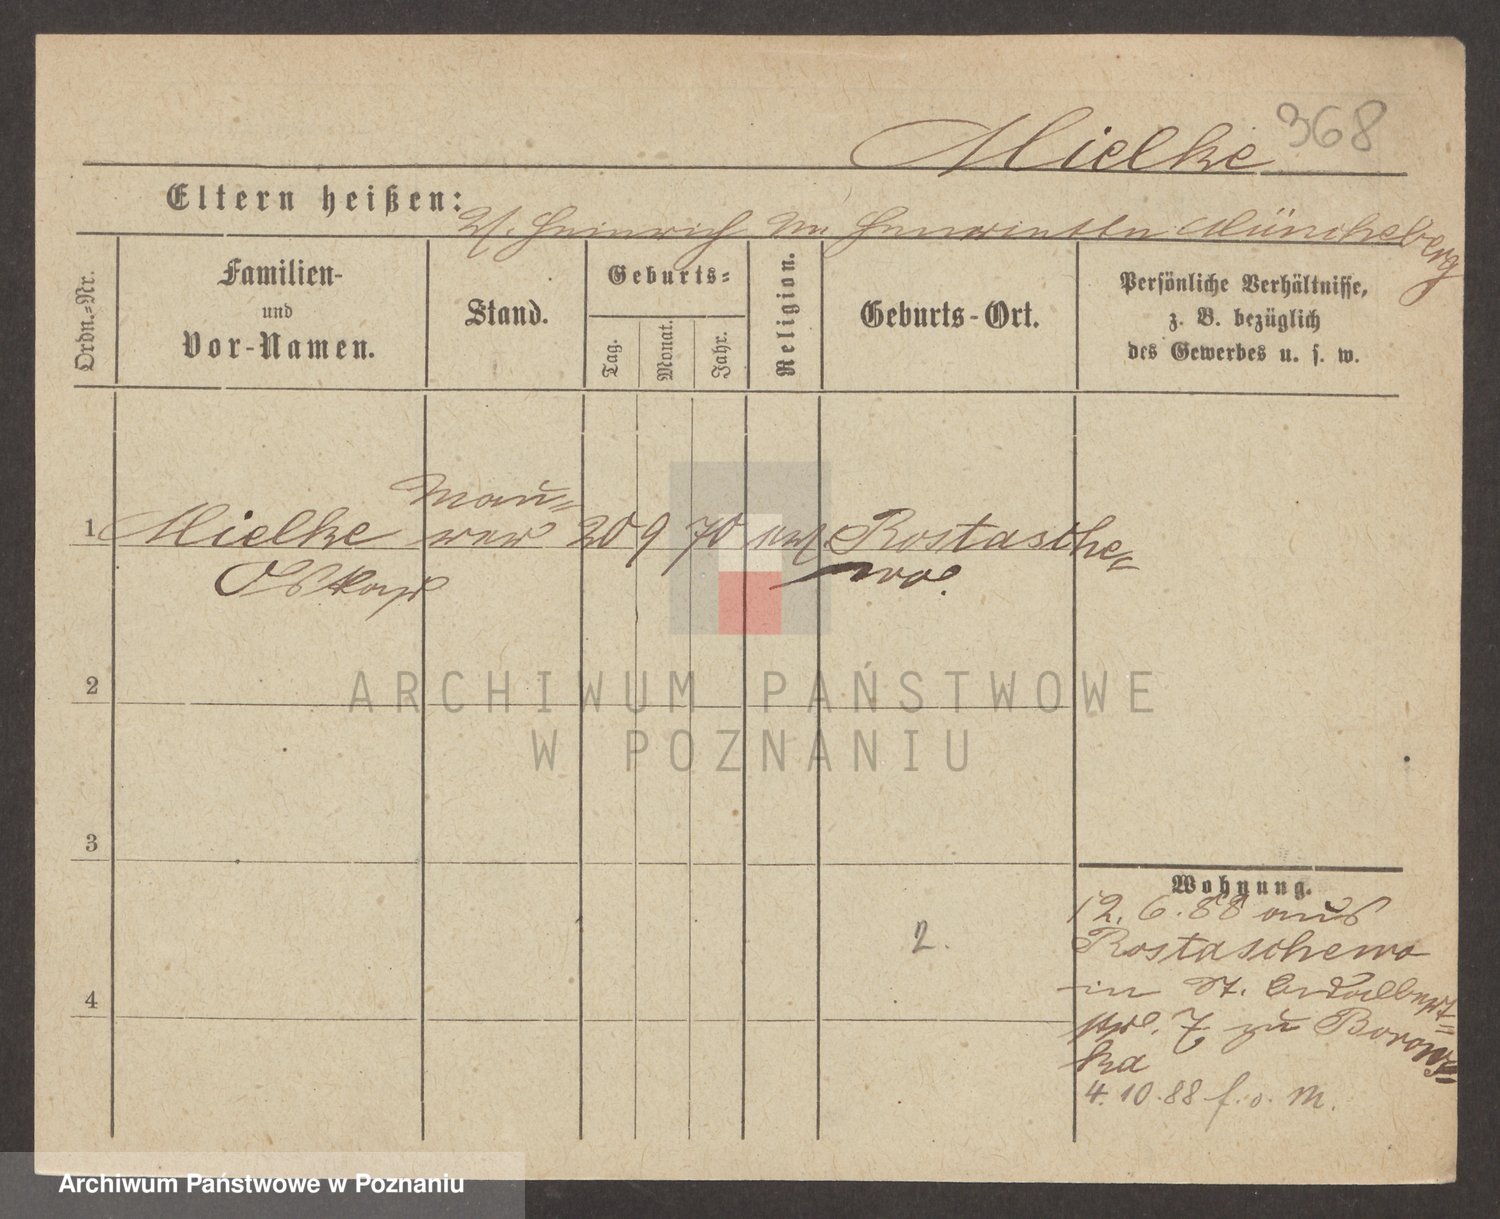 Mielke 368
Eltern heißen:
V. Heinrich M. Henriette Müncheberg
Ordn.-Nr.
Familien-
und
Vor-Namen.
Stand.
Geburts-
Tag.
Monat.
Jahr.
Religion.
Geburts-Ort.
Persönliche Verhältnisse,
z. B. bezüglich
des Gewerbes u. s. w.
Mau-
1 Mielke rer 20 9 70 Rostasche-
Oskar wo.
2
ARCHIWUM PAŃSTWOWE
W POZNANIU
3
Wohnung.
12. 6. 88 aus
Rostaschewo
2.
in St. Adalbert-
4
str. 7 zu Borows-
ka
4. 10. 88 f. o. M.
Archiwum Państwowe w Poznaniu